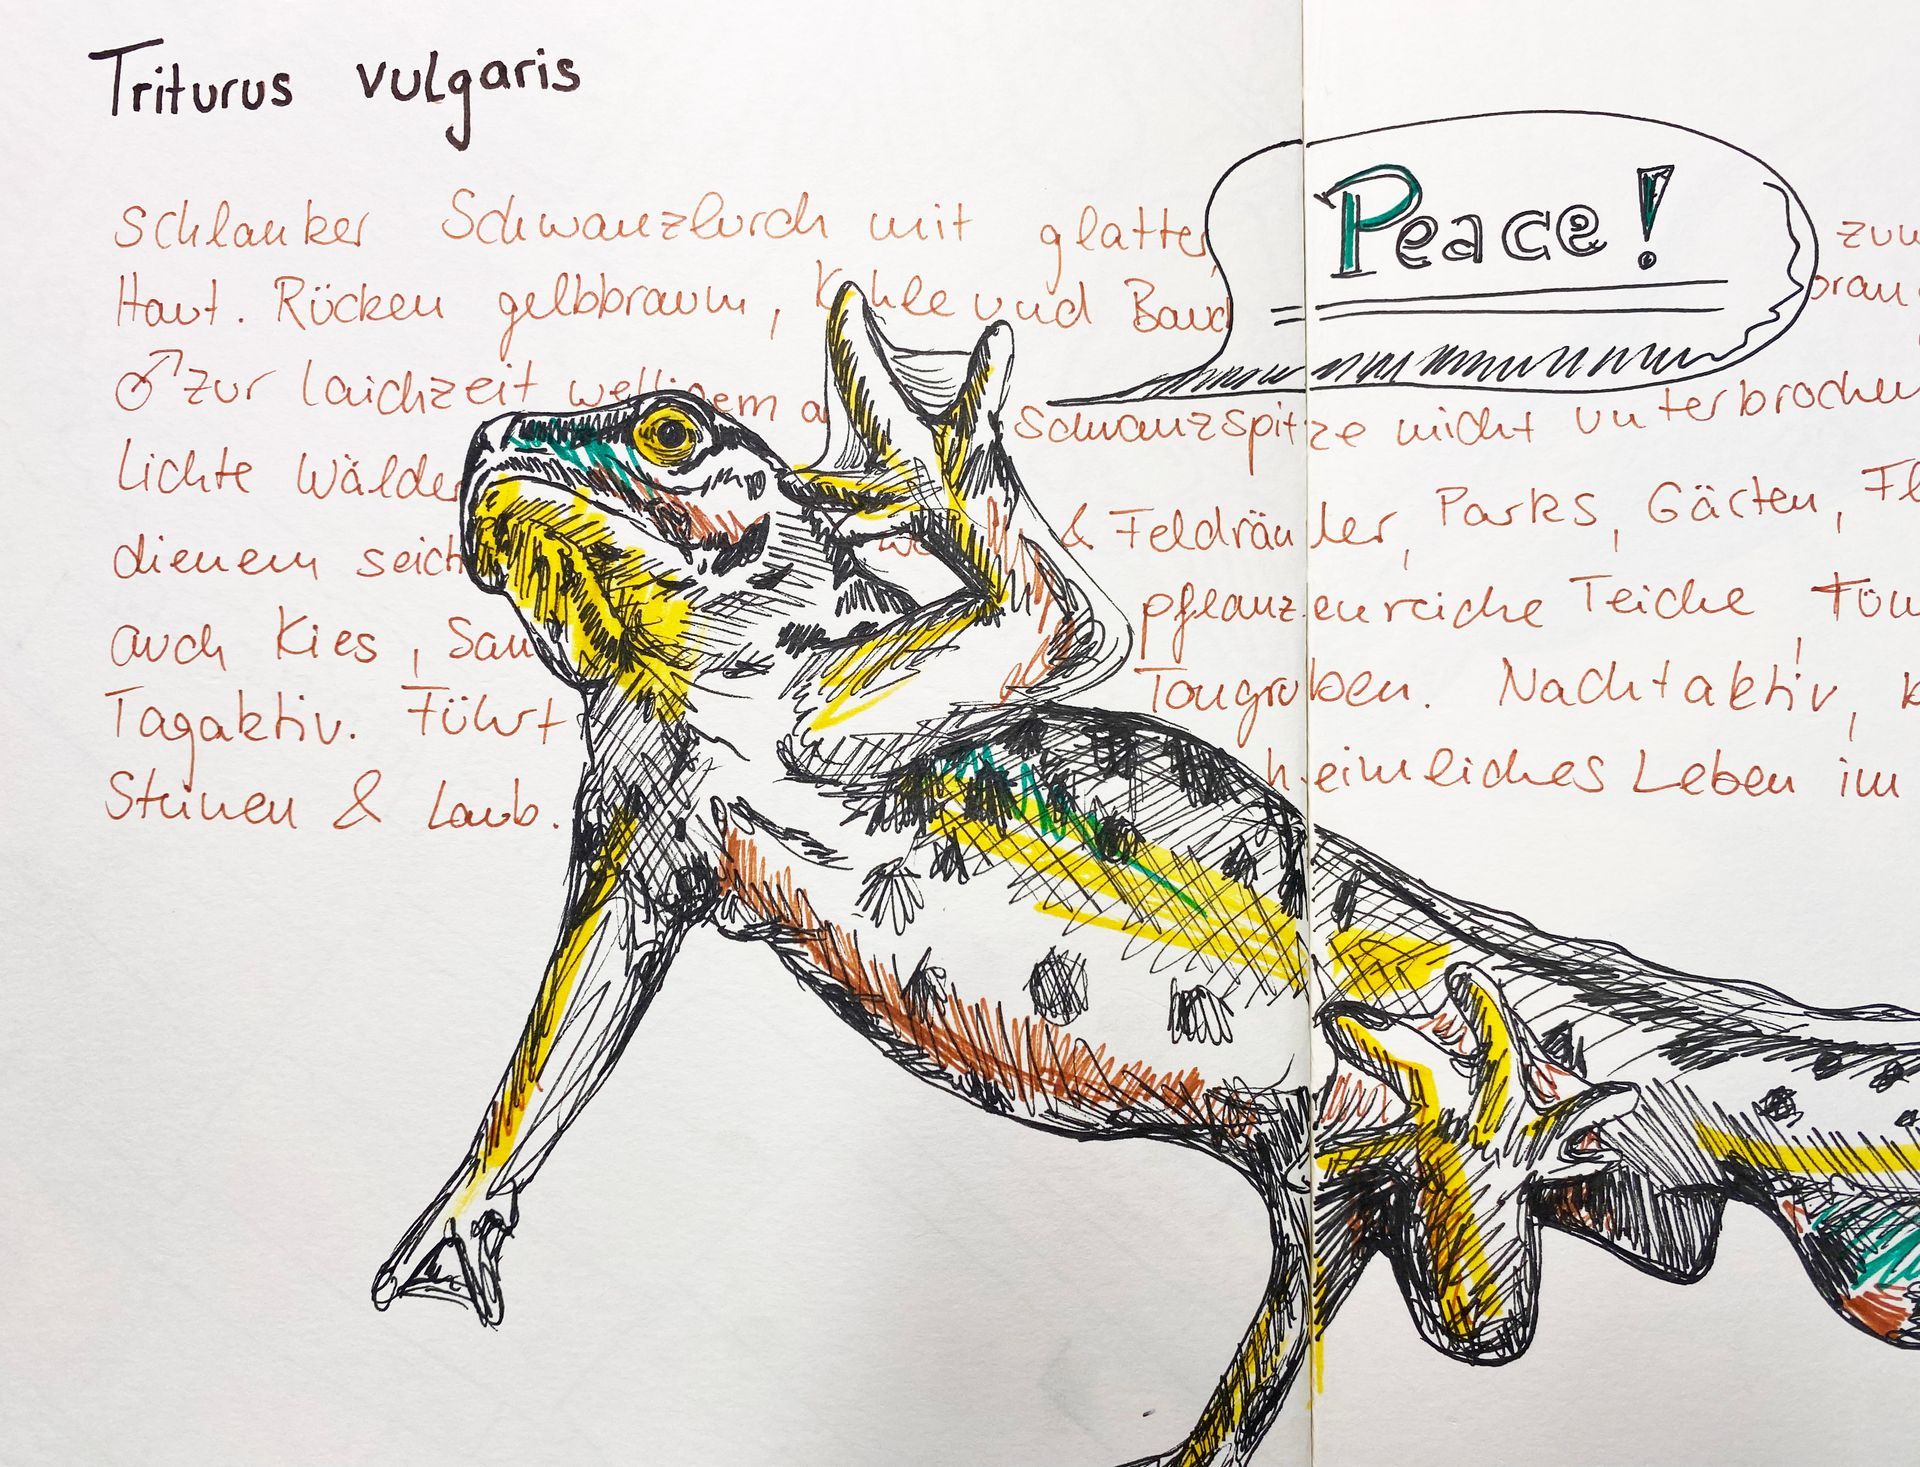 Triturus vulgaris
Peace!
schlanker Schwanzlurch mit glatter,
Haut. Rücken gelbbraun, Kehle und Bauch
♂ zur Laichzeit welligem Schwanzspitze nicht unterbrochen
Lichte Wälder & Feldränder, Parks, Gärten, Fl
dienem seich pflanzenreiche Teiche, Tüm
auch Kies, San Tongruben. Nachtaktiv, k
Tagaktiv. Führt heimliches Leben im
Steinen & Laub.